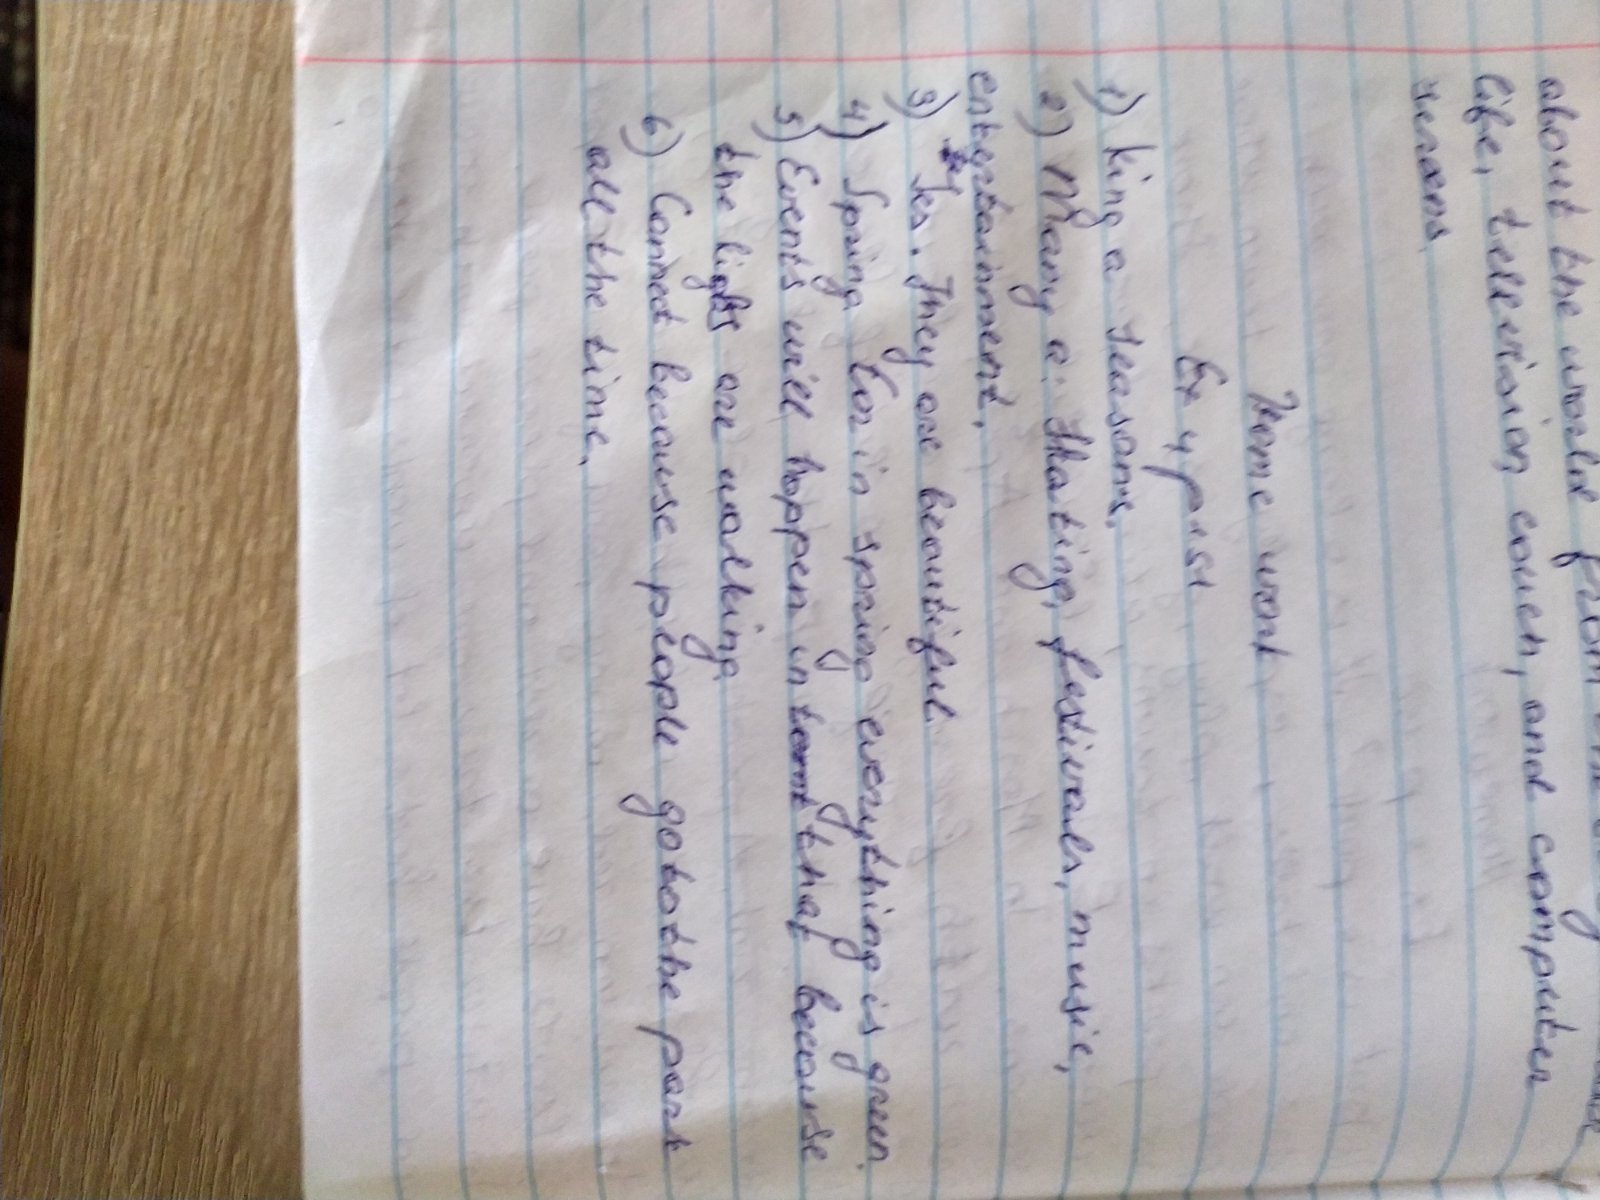 about the world from
life, tellvision, couch, and computer
screens
Home work
Ex 4 p 151
1) King a seasons.
2) Many a. Skating, festivals, music,
entertainment.
3) Yes. They are beautiful.
4) Spring. For in spring everything is green.
5) Events will happen in that because
the lights are walking
6) Connect because people go to the park
all the time.